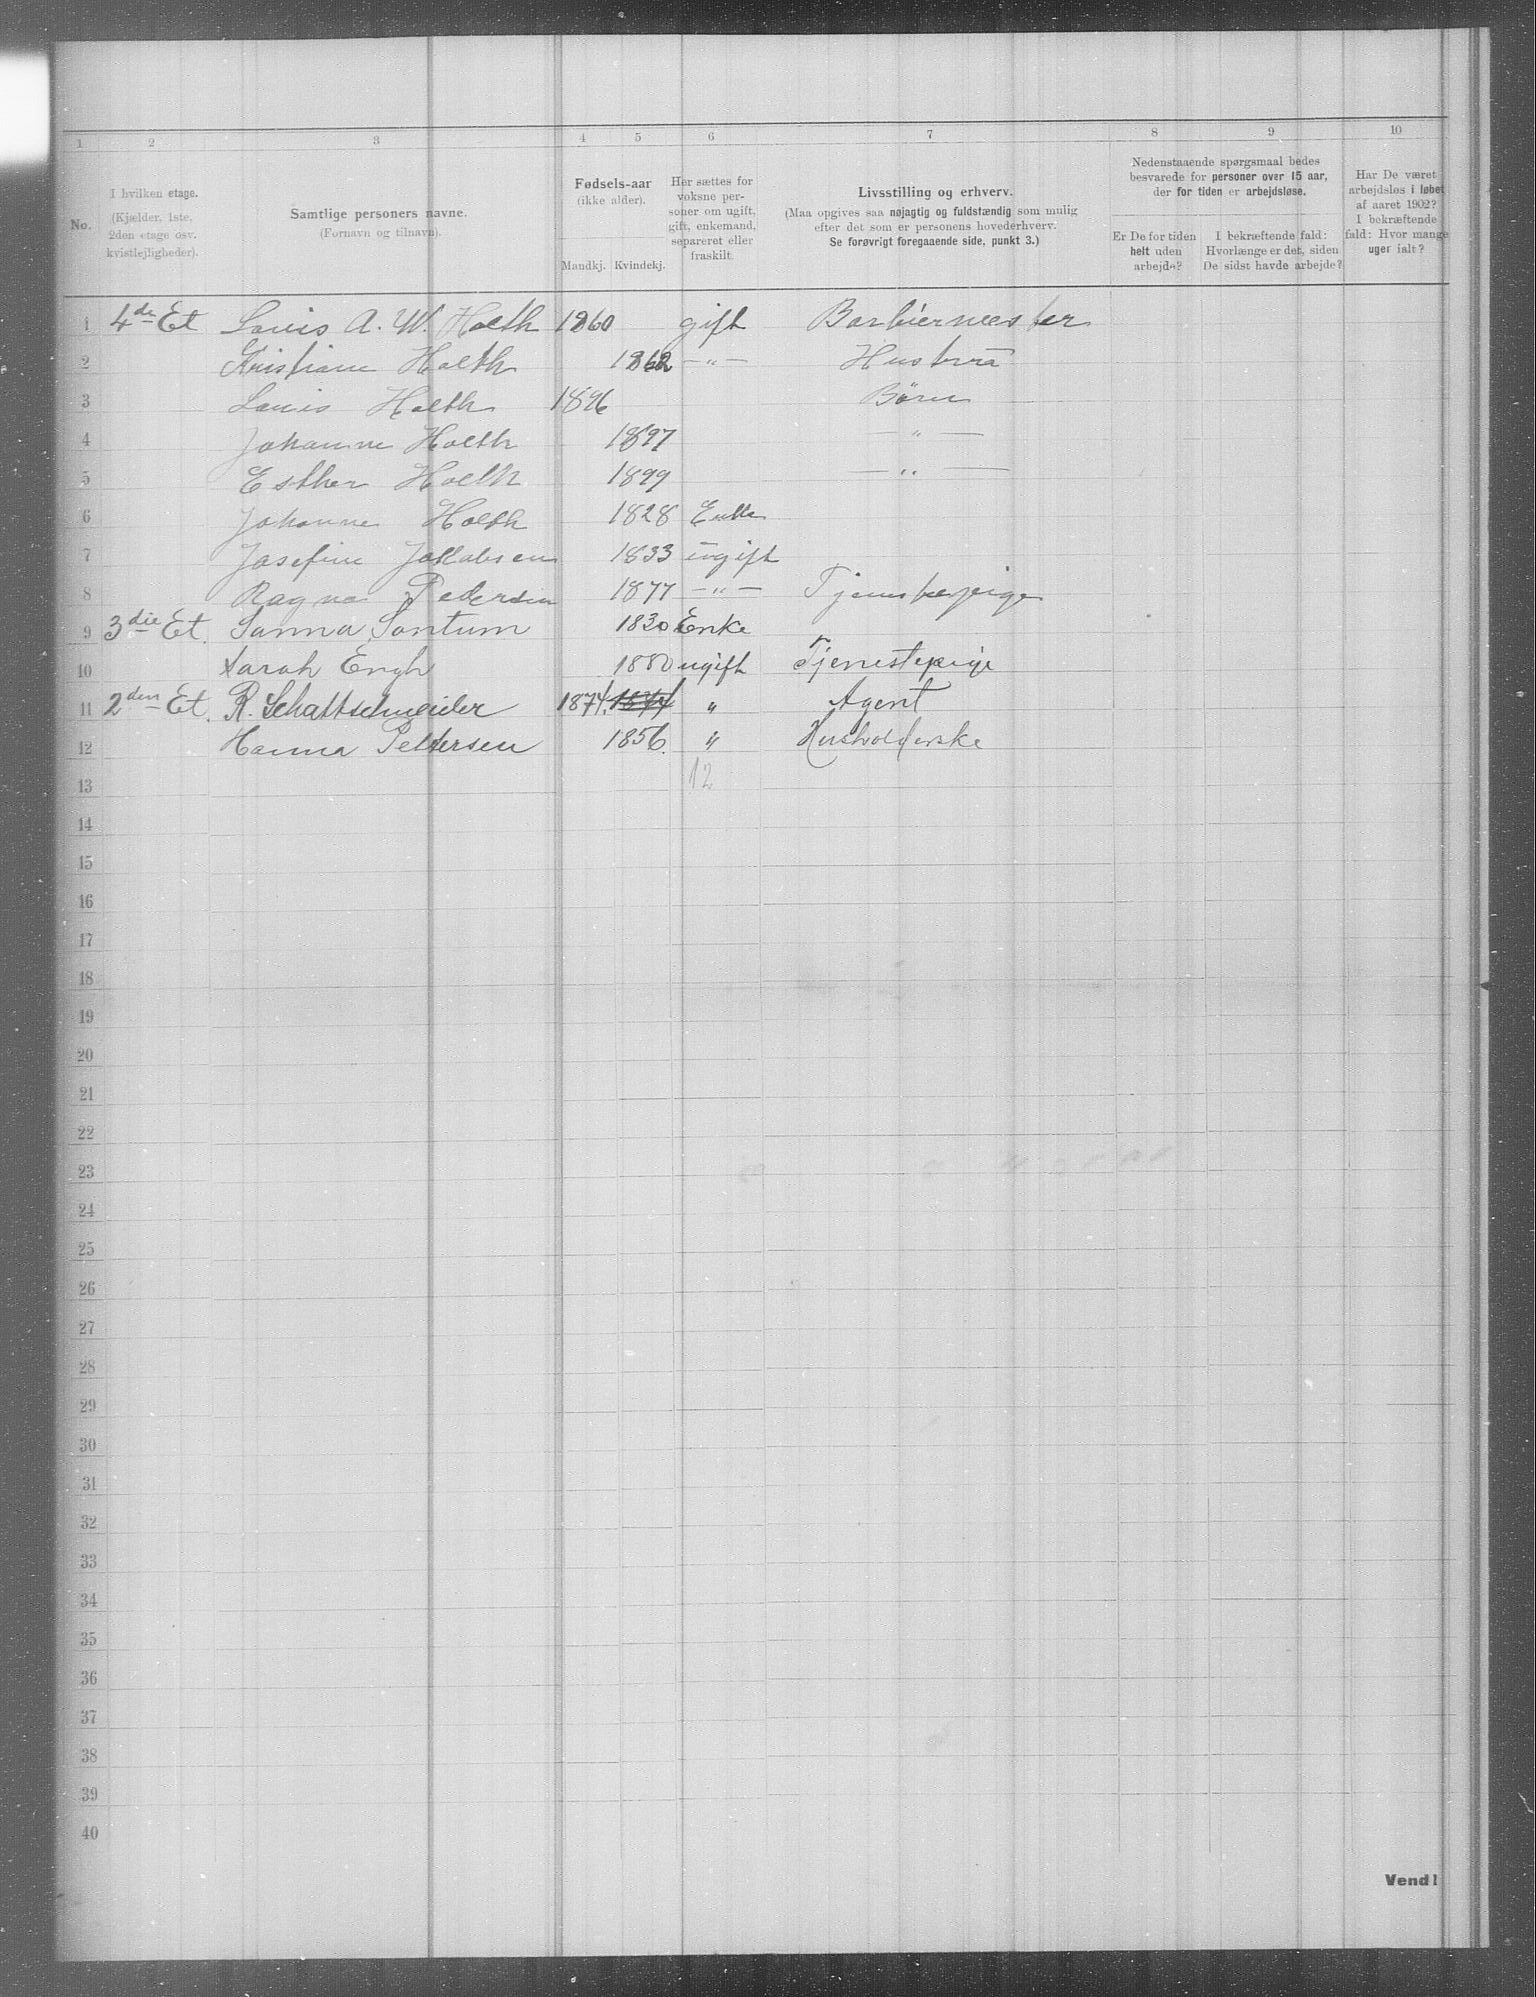 1 2 3 4 5 6 7 8 9 10
No.
I hvilken etage.
(Kjælder, 1ste,
2den etage osv.
kvistlejligheder).
Samtlige personers navne.
(Fornavn og tilnavn).
Fødsels-aar
(ikke alder).
Mandkj. Kvindekj.
Her sættes for
voksne per-
soner om ugift,
gift, enkemand,
separeret eller
fraskilt.
Livsstilling og erhverv.
(Maa opgives saa nøjagtig og fuldstændig som mulig
efter det som er personens hovederhverv.
Se forøvrigt foregaaende side, punkt 3.)
Nedenstaaende spørgsmaal bedes
besvarede for personer over 15 aar,
der for tiden er arbejdsløse.
Er De for tiden
helt uden
arbejde?
I bekræftende fald:
Hvorlænge er det, siden
De sidst havde arbejde?
Har De været
arbejdsløs i løbet
af aaret 1902?
I bekræftende
fald: Hvor mange
uger ialt?
1 4de Et Louis A. W. Holth 1860 gift Barbiermester
2 Kristiane Holth 1862 —"— Hustru
3 Louis Holth 1896 Børn
4 Johanne Holth 1897 —"—
5 Esther Holth 1899 —"—
6 Johanne Holth 1828 Enke
7 Josefine Jakobsen 1833 ugift
8 Ragna Pedersen 1877 —"— Tjenestepige
9 3die Et. Sanna Sontum 1830 Enke
10 Sarah Engh 1880 ugift Tjenestepige
11 2den Et. R. Schattschneider 1874. 1874 " Agent
12 Hanna Pettersen 1856. " Husholderske
13 12
14
15
16
17
18
19
20
21
22
23
24
25
26
27
28
29
30
31
32
33
34
35
36
37
38
39
40
Vend!